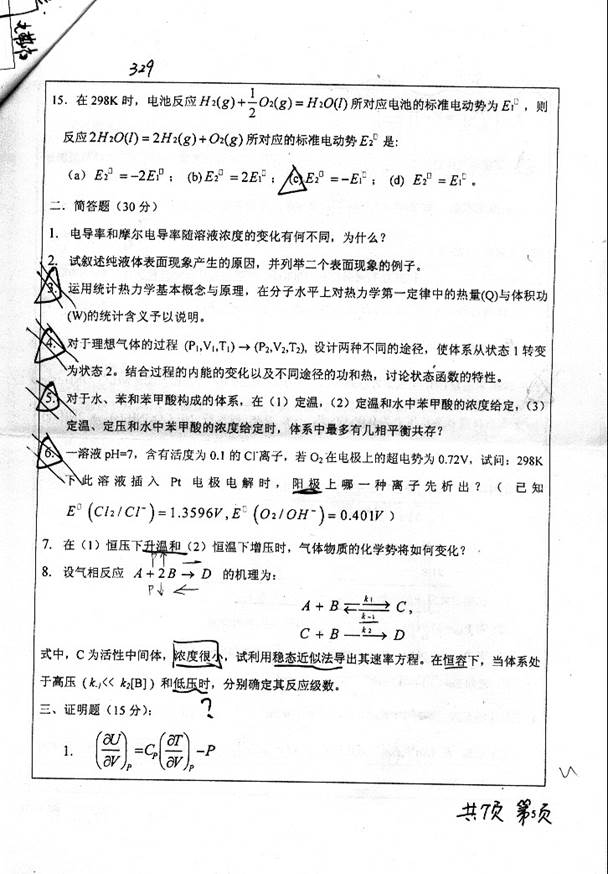 329
15. 在 298K 时，电池反应 H2(g)+1/2O2(g)=H2O(l) 所对应电池的标准电动势为 E1□，则
反应 2H2O(l)=2H2(g)+O2(g) 所对应的标准电动势 E2□ 是:
(a) E2□=-2E1□； (b) E2□=2E1□； (c) E2□=-E1□； (d) E2□=E1□。
二．简答题（30 分）
1. 电导率和摩尔电导率随溶液浓度的变化有何不同，为什么？
2. 试叙述纯液体表面现象产生的原因，并列举二个表面现象的例子。
3. 运用统计热力学基本概念与原理，在分子水平上对热力学第一定律中的热量(Q)与体积功
(W)的统计含义予以说明。
4. 对于理想气体的过程 (P1,V1,T1)→(P2,V2,T2), 设计两种不同的途径，使体系从状态 1 转变
为状态 2。结合过程的内能的变化以及不同途径的功和热，讨论状态函数的特性。
5. 对于水、苯和苯甲酸构成的体系，在（1）定温，（2）定温和水中苯甲酸的浓度给定，（3）
定温、定压和水中苯甲酸的浓度给定时，体系中最多有几相平衡共存？
6. 一溶液 pH=7，含有活度为 0.1 的 Cl⁻离子，若 O2在电极上的超电势为 0.72V，试问：298K
下此溶液插入 Pt 电极电解时，阳极上哪一种离子先析出？（已知
E□(Cl2/Cl⁻)=1.3596V, E□(O2/OH⁻)=0.401V）
7. 在（1）恒压下升温和（2）恒温下增压时，气体物质的化学势将如何变化？
8. 设气相反应 A+2B→D 的机理为:
P↓ ←
A + B ⇌ C, k1 k-1
C + B → D k2
式中，C 为活性中间体，浓度很小，试利用稳态近似法导出其速率方程。在恒容下，当体系处
于高压（k-1<< k2[B]）和低压时，分别确定其反应级数。
?
三、证明题（15 分）:
1. (∂U/∂V)P=CP(∂T/∂V)P-P
共7页 第5页